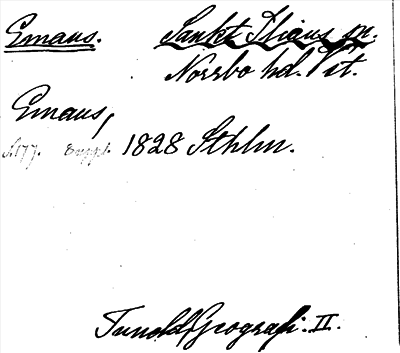 Emaus. Sankt Ilians sn.
Norrbo hd. Vst.
Emaus,
s. 177. 1828 Sthlm.
Tuneld Geografi. II.